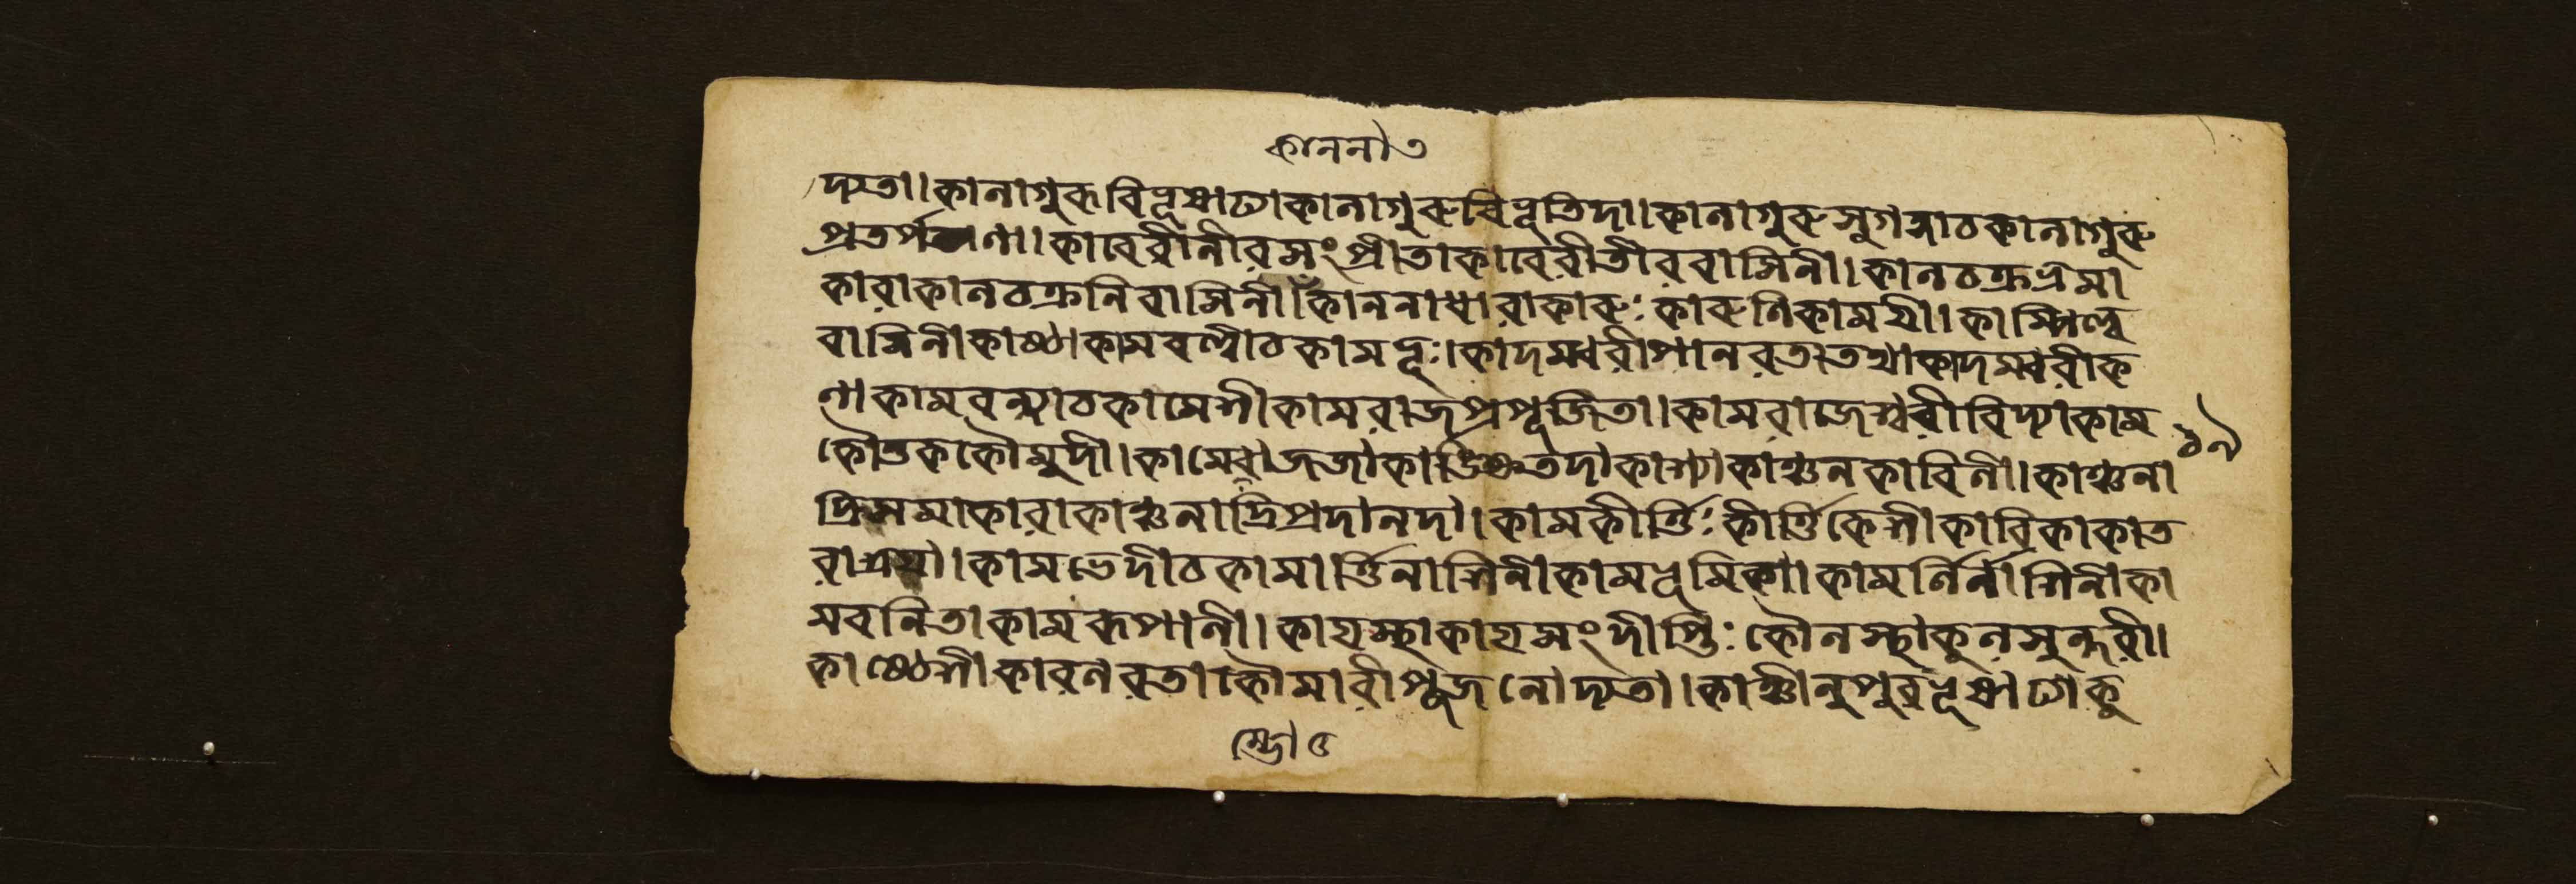 কাননা ৩
দ্যতা। কালাগুরুবিভূষাঢ্যা কালাগুরুবিভূতিদা। কালাগুরুসুগন্ধা চ কালাগুরু
প্রতর্পণা। কাবেরীনীরসংপ্রীতা কাবেরীতীরবাসিনী। কালচক্রভ্রমা
কারা কালচক্রনিবাসিনী। কাননাধারা কারুঃ কারুণিকাময়ী। কাম্পিল্য
বাসিনী কাষ্ঠা কামবল্লী চ কামভূঃ। কাদম্বরীপানরতা তথা কাদম্বরীক
লা কামবন্দ্যা চ কামেশী কামরাজপ্রপূজিতা। কামরাজেশ্বরীবিদ্যা কাম
কৌতুককৌমুদী। কামো জজা কা দা কাশ্যা কাঞ্চনকারিণী। কাঞ্চনা
দ্রিসমাকারা কাঞ্চনাদ্রিপ্রদানদা। কামকীর্ত্তিঃ কীর্ত্তিকেশী কারিকা কাত
রাশ্রয়া। কামভেদী চ কামার্ত্তিনাশিনী কামভূমিকা। কামনির্নাশিনী কা
মবনিতা কামরূপানী। কায়স্থা কায়সংদীপ্তিঃ কৌলস্থা কুলসুন্দরী।
কাষ্ঠেশী কারণরতা কৌমারীপূজনোদ্যতা। কাঞ্চীনুপুরভূষাঢ্যে কু
১৭